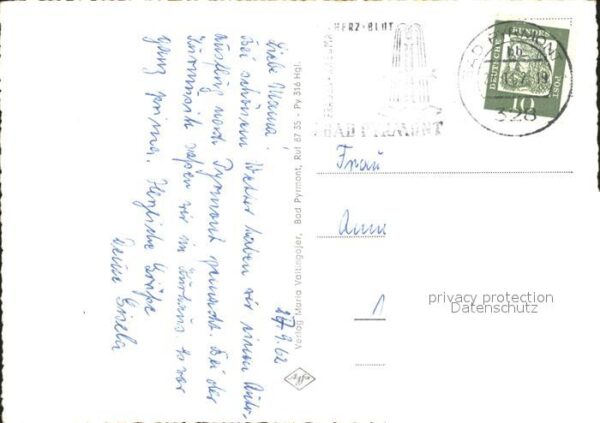 Liebe Mama!
Bei schönem Wetter haben wir einen Auto-
ausflug nach Pyrmont gemacht. Bei der
Kurmusik saßen wir im Kurhaus. Es war
ganz prima. Herzliche Grüße
Deine Gisela
17.9.62
Verlag Maria Vattingofer, Bad Pyrmont, Ruf 87 35 - Py 316 Hgl.
Agfa
HERZ · BLUT
BAD PYRMONT
BAD PYRMONT
328
DEUTSCHE BUNDESPOST
10
Frau
Anne
1
privacy protection
Datenschutz